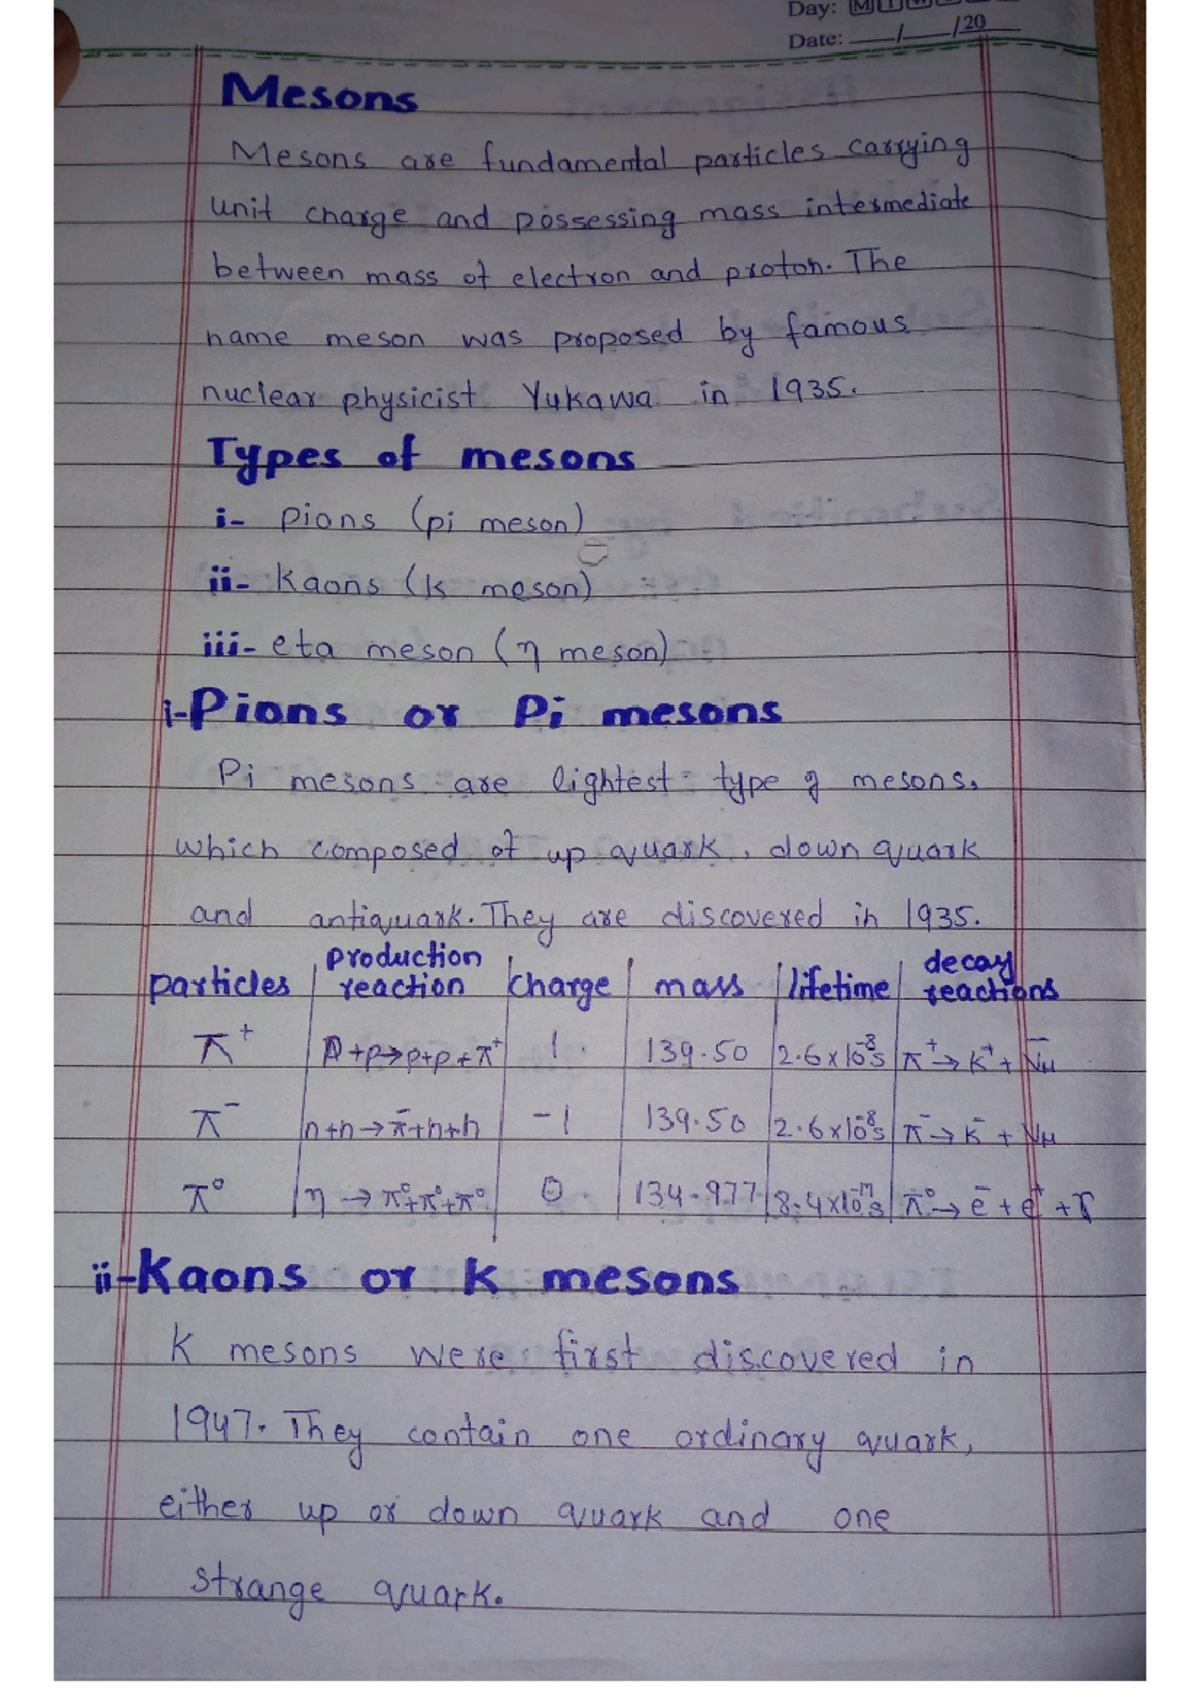 Day: M T W
Date: ___/___/20
Mesons
Mesons are fundamental particles carrying
unit charge and possessing mass intermediate
between mass of electron and proton. The
name meson was proposed by famous
nuclear physicist Yukawa in 1935.
Types of mesons
i- Pions (pi meson)
ii- Kaons (k meson)
iii- eta meson (η meson)
i-Pions or Pi mesons
Pi mesons are lightest type of mesons,
which composed of up quark, down quark
and antiquark. They are discovered in 1935.
particles | production reaction | charge | mass | lifetime | decay reactions
π⁺ | p+p→p+p+π⁺ | 1 | 139.50 | 2.6×10⁻⁸s | π⁺→K⁺+ν̄μ
π⁻ | n+n→π⁻+n+n | -1 | 139.50 | 2.6×10⁻⁸s | π⁻→K⁻+νμ
π⁰ | η→π⁰+π⁰+π⁰ | 0 | 134.977 | 8.4×10⁻¹⁷s | π⁰→e⁻+e⁺+γ
ii-Kaons or K mesons
K mesons were first discovered in
1947. They contain one ordinary quark,
either up or down quark and one
strange quark.